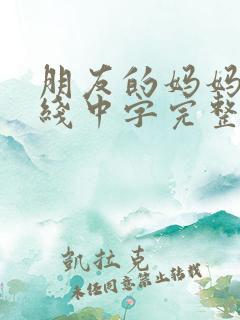 朋友的妈妈
线中字完整
凯拉克
未经同意禁止转载